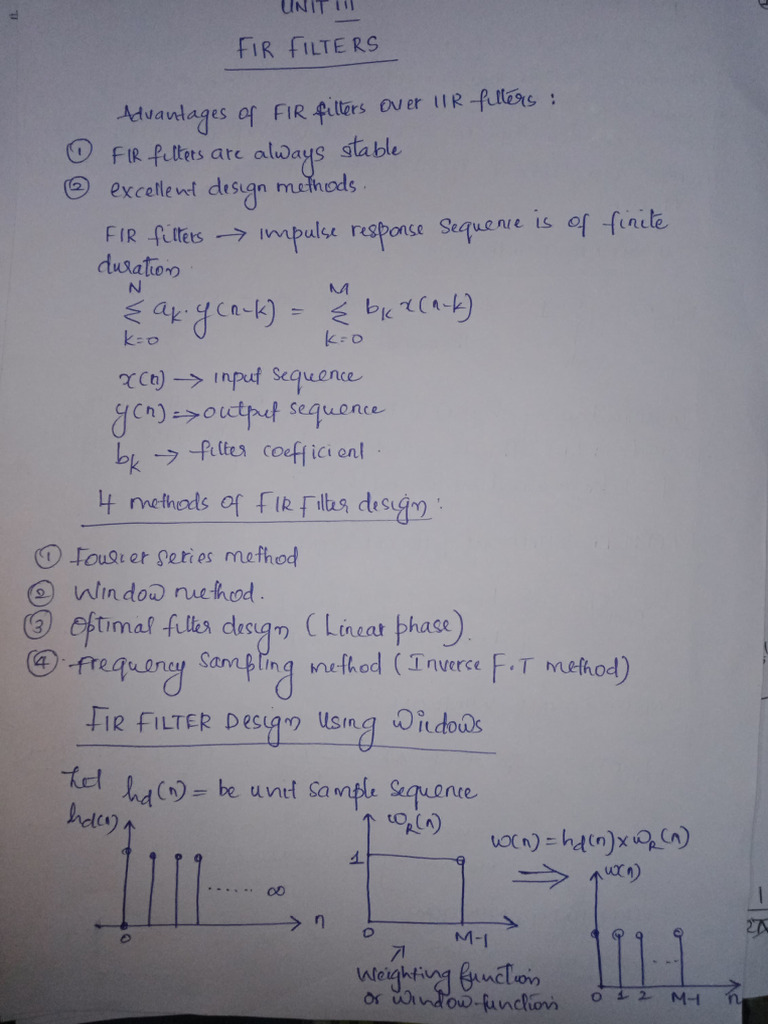 UNIT III
FIR FILTERS
Advantages of FIR filters over IIR filters :
① FIR filters are always stable
② excellent design methods.
FIR filters → impulse response sequence is of finite
duration
N M
Σ aₖ. y(n-k) = Σ bₖ x(n-k)
k=0 k=0
x(n) → input sequence
y(n) ⇒ output sequence
bₖ → filter coefficient.
4 methods of FIR Filter design :
① Fourier series method
② Window method.
③ Optimal filter design (Linear phase).
④ Frequency Sampling method (Inverse F.T method)
FIR FILTER Design Using Windows
Let hd(n) = be unit sample sequence
hd(n)
0
...... ∞
n
ωR(n)
1
0
M-1
Weighting function
or window function
ω(n) = hd(n) × ωR(n)
⇒
ω(n)
...
0 1 2 M-1 n
1